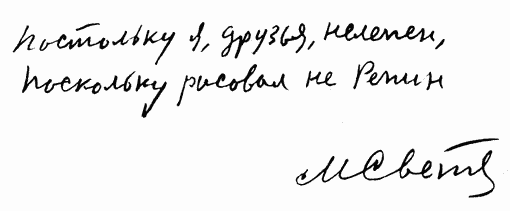 Постольку я, друзья, нелепен,
Поскольку рисовал не Репин
М Светл